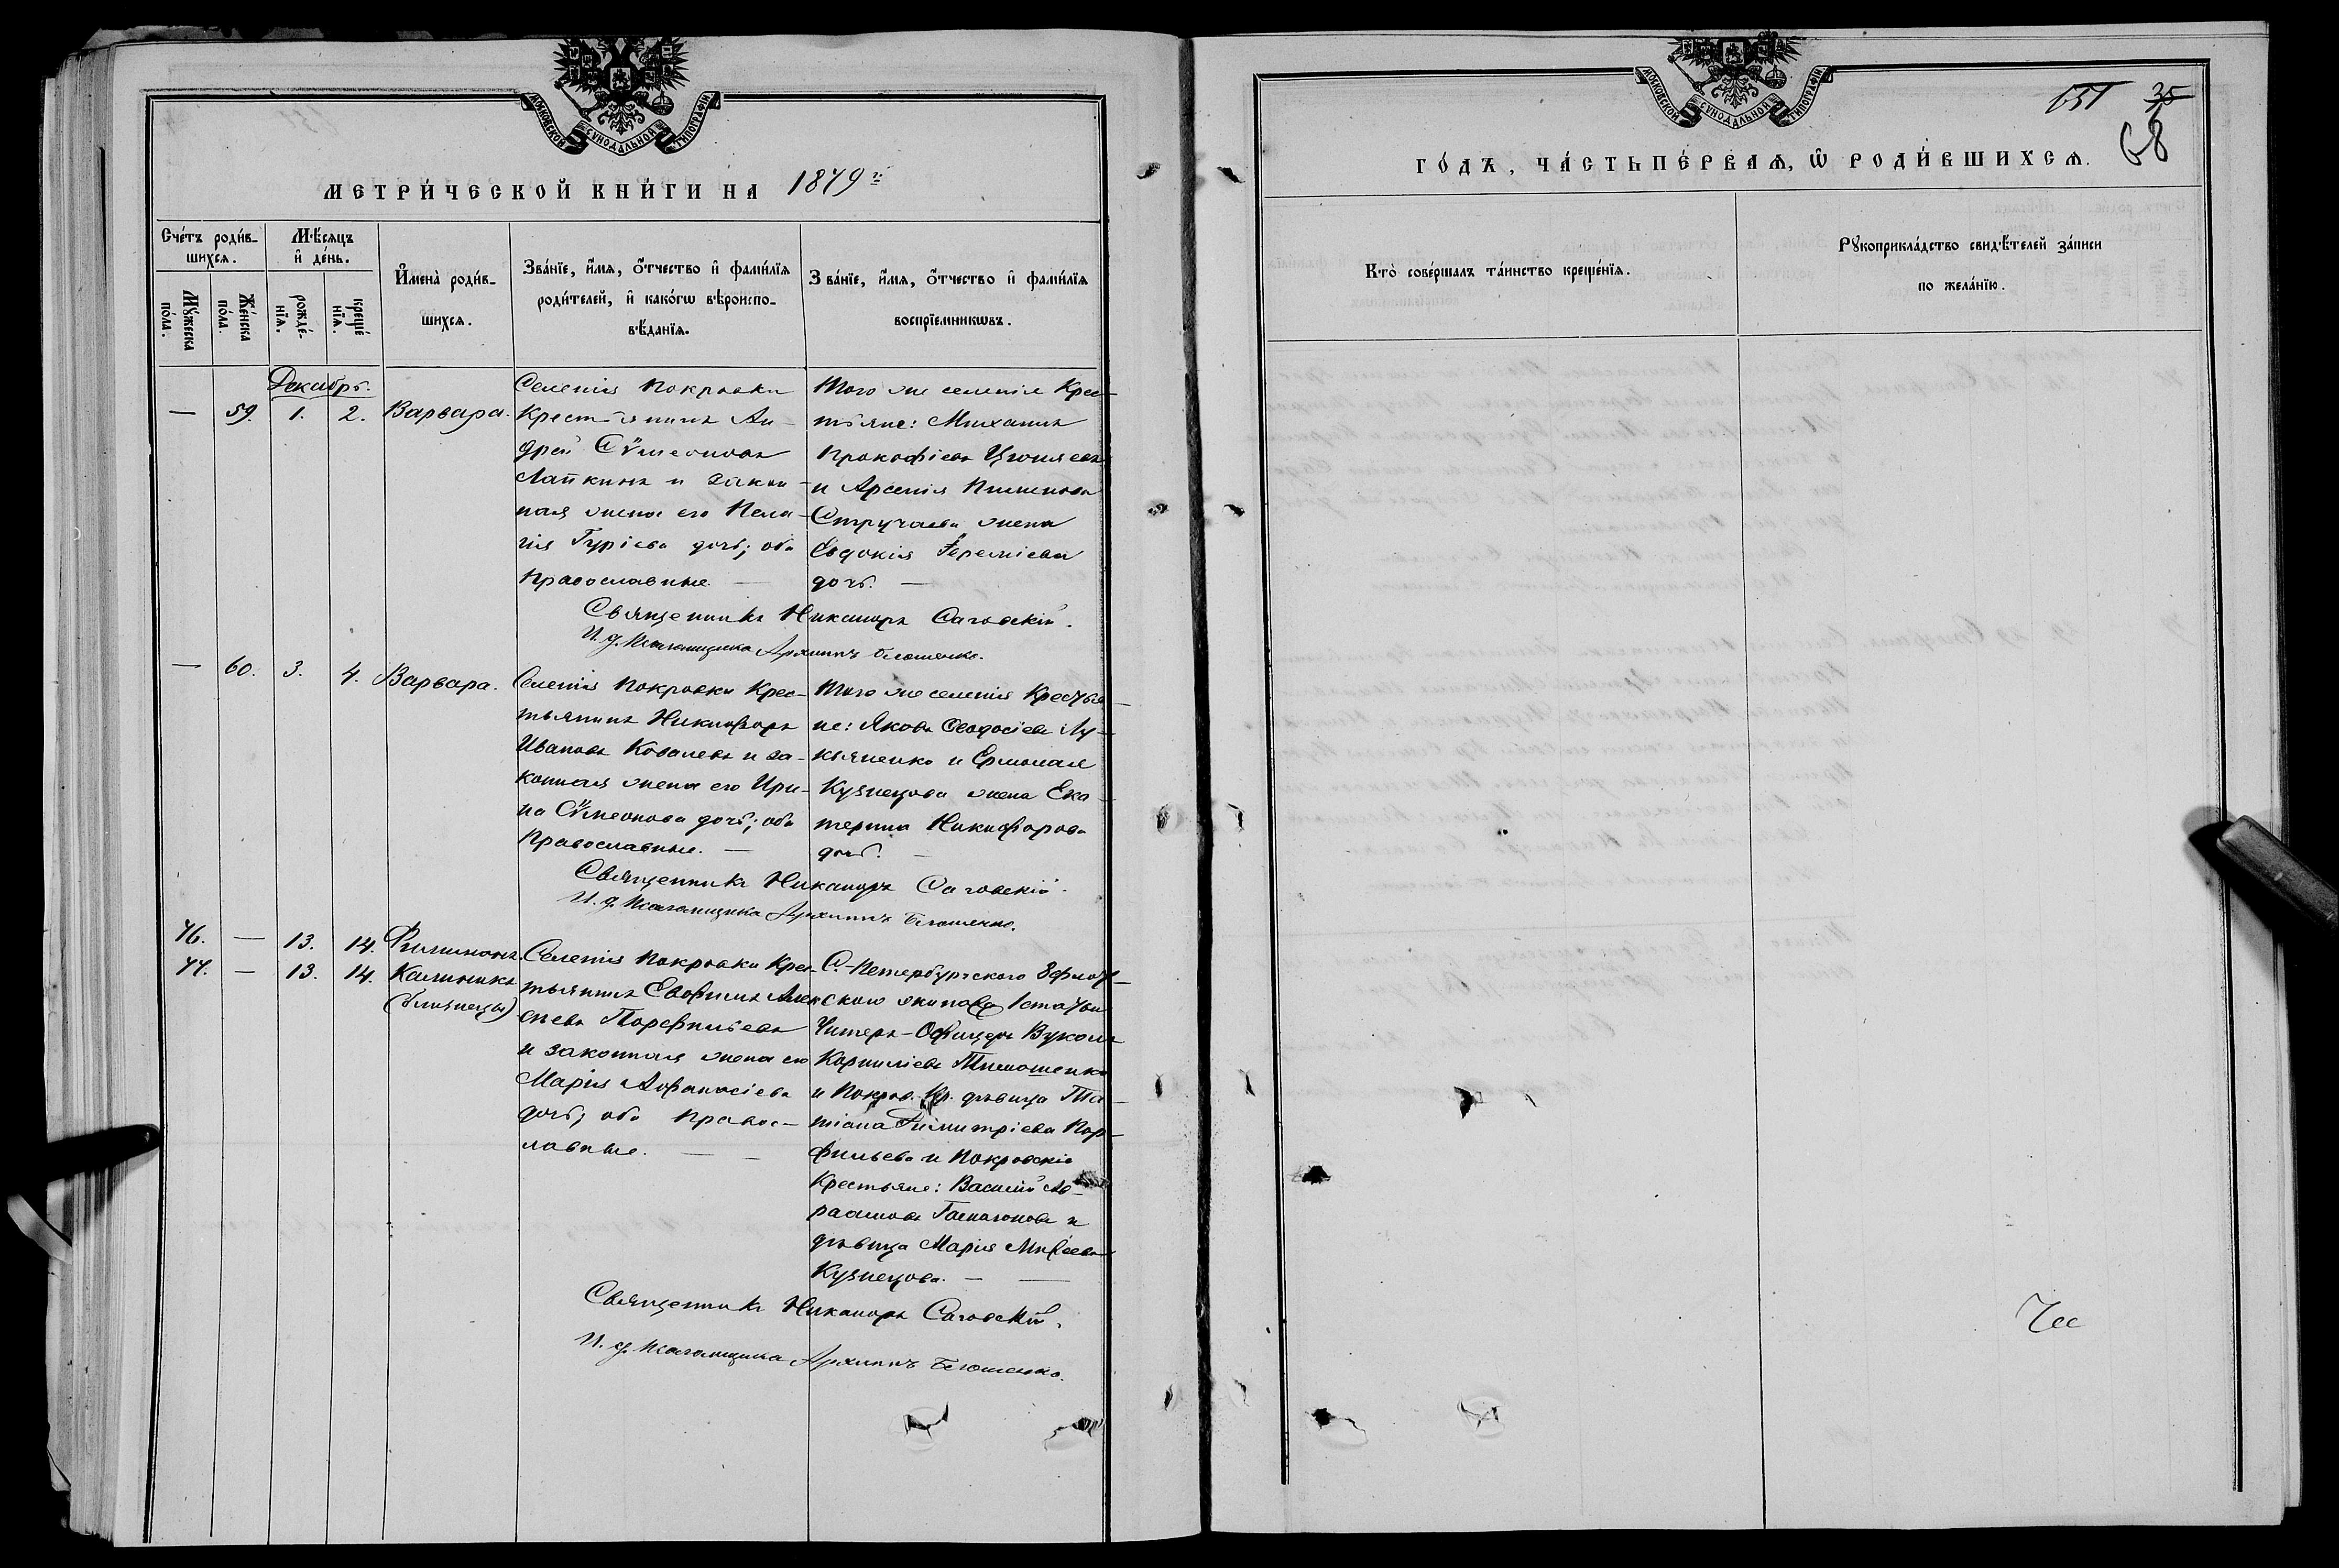 МОСКОВСКОЙ СѴНОДАЛЬНОЙ ТИПОГРАФІИ
МЕТРИ́ЧЕСКОЙ КНИ́ГИ НА 1879 г.
Сче́тъ роди́в-
шихсѧ.
Мꙋ́жеска по́ла.
Же́нска по́ла.
Мѣ́сѧцъ
и҆ де́нь.
рожде́-
нїѧ.
креще́
нїѧ.
И҆мена̀ роди́в-
шихсѧ.
Зва́нїе, и҆́мѧ, ѻ҆́тчество и҆ фами́лїѧ
роди́телей, и҆ како́гѡ вѣроиспо-
вѣ́данїѧ.
Зва́нїе, и҆́мѧ, ѻ҆́тчество и҆ фами́лїѧ
воспрїе́мникѡвъ.
Декабрь.
— 59. 1. 2. Варвара.
Селенія Покровки
Крестьянинъ Ан-
дрей Сѵмеоновъ
Лапкинъ и закон-
ная жена его Пела-
гія Гуріева дочь; оба
Православные. —
Того же селенія Крес-
тьяне: Михаилъ
Прокофіевъ
и Арсенія Пименова
Стручаева жена
Евдокія Іереміева
дочь. —
Священникъ Никаноръ Саговскій.
И. д. Псаломщика Архиппъ
— 60. 3. 4. Варвара.
Селенія Покровки Крес-
тьянинъ Никифоръ
Ивановъ Ковалевъ и за-
конная жена его Ири-
на Сѵмеонова дочь; оба
Православные. —
Того же селенія Крестья-
не: Яковъ Ѳеодосіевъ Лу-
кьяненко и Ермолая
Кузнецова жена Ека-
терина Никифорова
дочь. —
Священникъ Никаноръ Саговскій.
И. д. Псаломщика Архиппъ
76. — 13. 14. Филимонъ.
77. — 13. 14. Калиникъ
(близнецы)
Селенія Покровки Крес-
тьянинъ Евфимъ Алек-
сѣевъ Порфильевъ
и законная жена его
Марія Аѳанасіева
дочь; оба Правос-
лавные. — —
С.-Петербургскаго
скаго экипажа 1 статьи
Унтеръ-Офицеръ Вуколъ
Корниліевъ Тимошенко
и Покров. Кр. дѣвица Та-
тіана Димитріева Пор-
фильева и Покровскіе
Крестьяне: Василій Ав-
раамовъ и
дѣвица Марія
Кузнецова. — —
Священникъ Никаноръ Саговскій.
И. д. Псаломщика Архиппъ
МОСКОВСКОЙ СѴНОДАЛЬНОЙ ТИПОГРАФІИ
35
68
ГО́ДЪ, ЧА́СТЬ ПЕ́РВАѦ, Ѿ РОДИ́ВШИХСѦ.
Кто̀ соверша́лъ та́инство креще́нїѧ.
Рꙋкоприкла́дство свидѣ́телей за́писи
по жела́нїю.